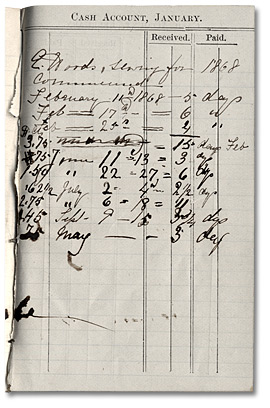 CASH ACCOUNT, JANUARY.
Received. Paid.
E. Woods, sewing for 1868
Commenced
February 11th 1868 - 5 days
Feb = 17th = 6 "
Feb = 24th = 2 "
3.75 = 15 days Feb
.75 June 11 = 13 = 3 dys
1.50 " 22 = 27 = 6 dys
.62½ July 2 - 4 = 2½ dys
2.75 " 6 = 18 = 11
Sept - 9 - dys
.75 May - - 3 days